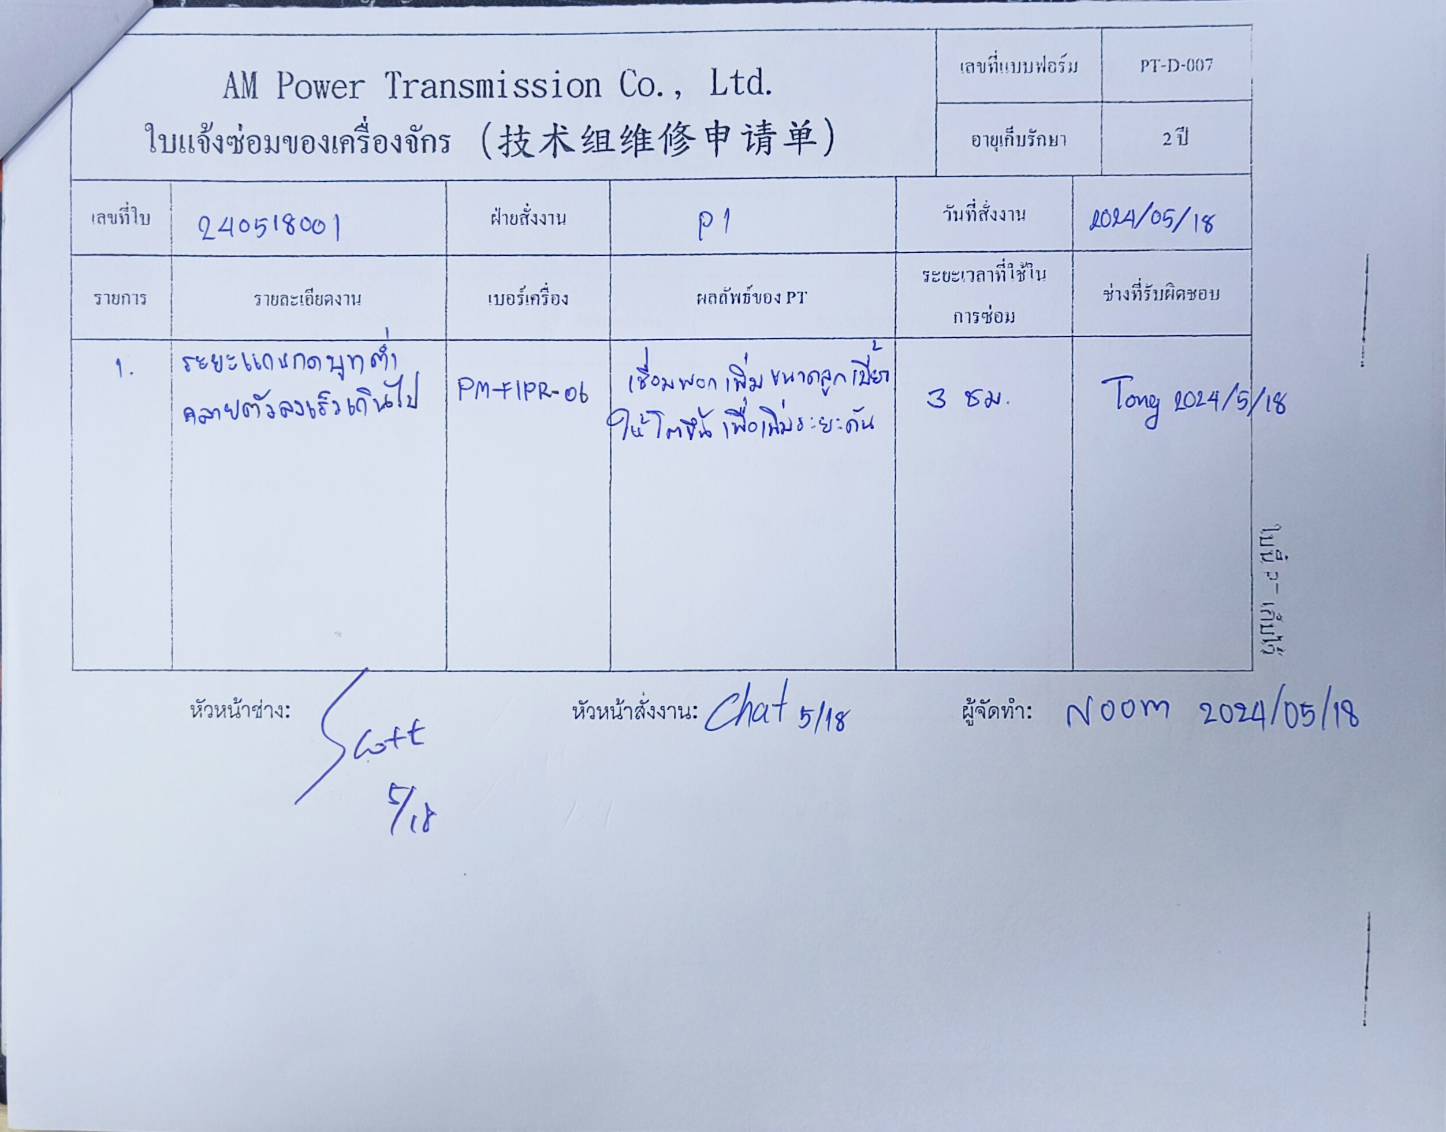 AM Power Transmission Co., Ltd.
ใบแจ้งซ่อมของเครื่องจักร (技术组维修申请单)
เลขที่แบบฟอร์ม PT-D-007
อายุเก็บรักษา 2 ปี
เลขที่ใบ 240518001 ฝ่ายสั่งงาน P1 วันที่สั่งงาน 2024/05/18
รายการ รายละเอียดงาน เบอร์เครื่อง ผลลัพธ์ของ PT ระยะเวลาที่ใช้ใน
การซ่อม
ช่างที่รับผิดชอบ
1. ระยะแกนกดบูทต่ำ
คลายตัวลงเร็วเกินไป
PM-FIPR-06
เชื่อมพอกเพิ่มขนาดลูกเบี้ยว
ให้โตขึ้นเพื่อเพิ่มระยะดัน
3 ชม.
Tong 2024/5/18
ใบนี้ PT เก็บไว้
หัวหน้าช่าง: Scott
5/18
หัวหน้าสั่งงาน: Chat 5/18
ผู้จัดทำ: Noom 2024/05/18